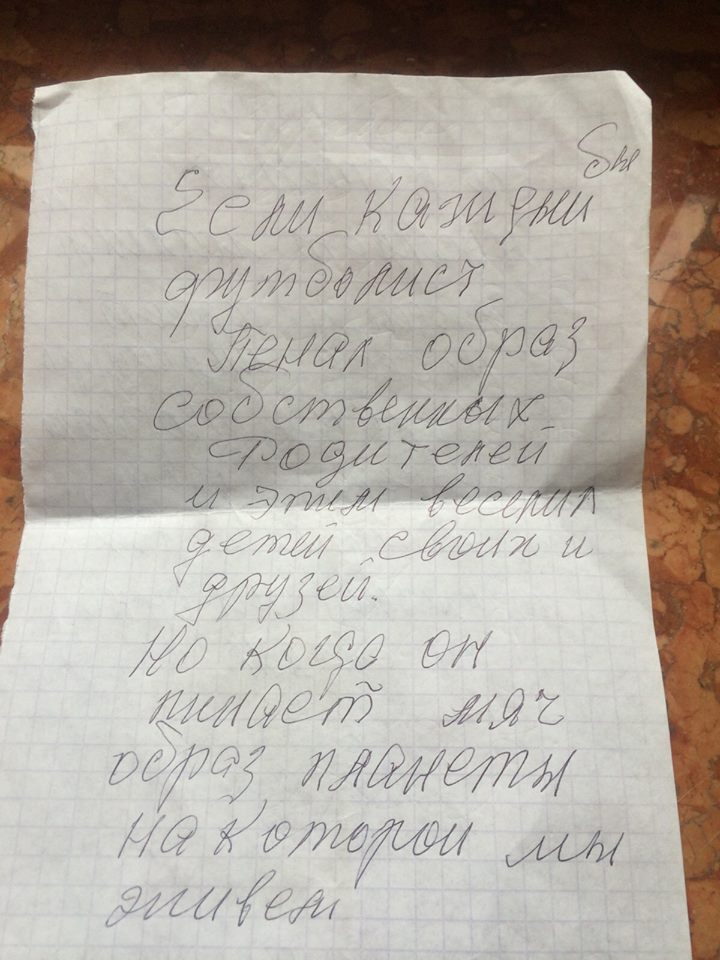 бы
Если каждый
футболист
Пенал образ
собственных
Родителей
и этим веселил
детей своих и
друзей.
Но когда он
пинает мяч
образ планеты
на которой мы
живем